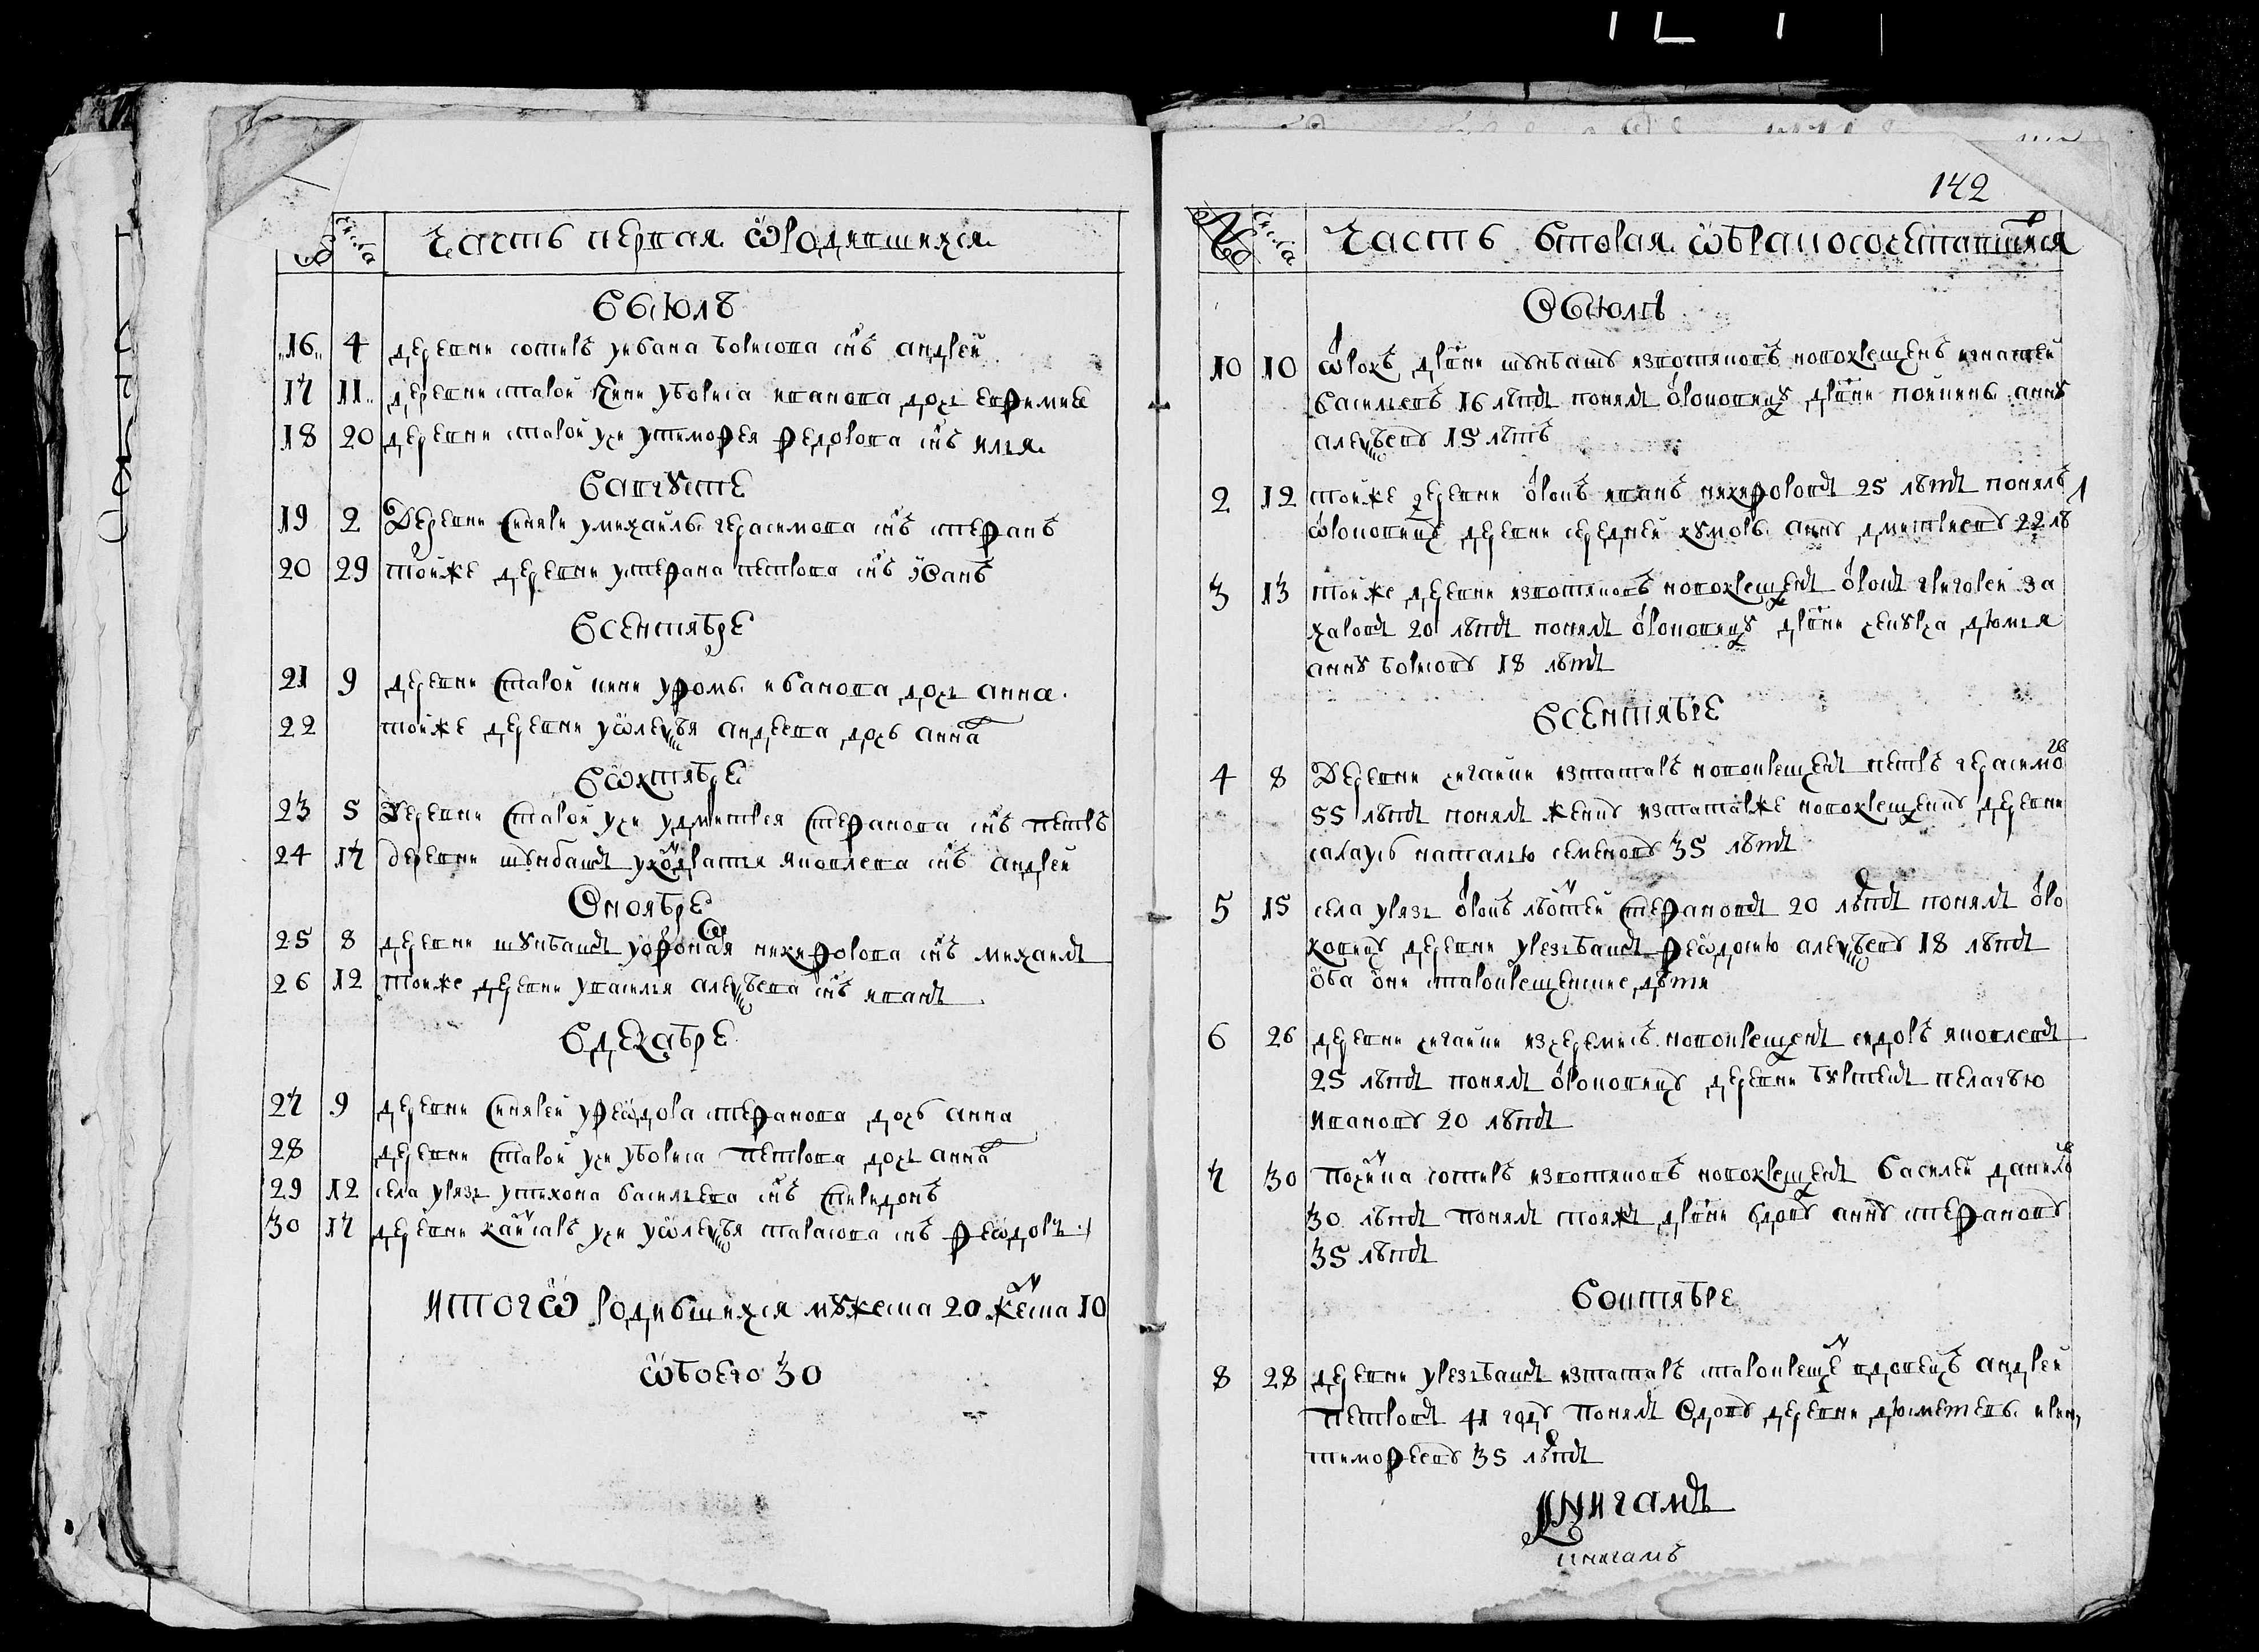 142
№ числа Часть первая ѡродившихся
В июлѣ
16 4 деревни сотнꙋръ уивана борисова снъ андрей
17 11 деревни старой уборисa иванова дочь
18 20 деревни старой учи утимофея федорова снъ илья
Вавгꙋсте
19 2 Деревни синяри умихаилы герасимова снъ стефанъ
20 29 тойже деревни устефана петрова снъ иванъ
Всентябре
21 9 деревни старой ивaнова дочь анна
22 тойже деревни уѡлеѯѣя андреева дочь анна
Вѡктябре
23 5 Деревни старой учи удмитрея стефанова снъ петръ
24 17 деревни шꙋнбашъ уко͡ндратья яковлева снъ андрей
Вноябре
25 8 деревни шꙋнбашъ никифорова снъ михаилъ
26 12 тоиже деревни увасилья алеѯѣева снъ иванъ
Вдекабре
27 9 деревни синярей уфеѡдора стефанова дочь анна
28 деревни старой учи убориса петрова дочь анна
29 12 села урязъ утихона васильева снъ спиридонъ
30 17 деревни учи уѡлеѯѣя тарасова снъ феѡдоръ
Итогѡ родившихся мꙋжеска 20 женска 10
ѡбоего 30
№ числа Часть вторая ѡбракосочетавшихся
Виюлѣ
10 10 ѡрокъ дрвни шꙋнбашъ извотяковъ новокрещенъ игнатей
васильевъ 16 лѣтъ понялъ ѻроковицꙋ дрвни аннꙋ
алеѯѣевꙋ 15 лѣтъ
2 12 тойже деревни ѻрокъ иванъ никифоровъ 25 лѣтъ понялъ
ѡроковицꙋ деревни середней кꙋморъ аннꙋ дмитриевꙋ 22 лѣ
3 13 тойже деревни извотяковъ новокрещенъ ѻрокъ григорей за
харовъ 20 лѣтъ понялъ ѻроковицꙋ дрвни ченꙋрча дюмья
аннꙋ борисовꙋ 18 лѣтъ
Всентябре
4 8 Деревни чигаики изтатаръ новокрещенъ петръ герасимовъ
55 лѣтъ понялъ женꙋ изтатаръже новокрещенꙋ деревни
салаусь наталью семеновꙋ 35 лѣтъ
5 15 села урязъ ѻрокъ стефановъ 20 лѣтъ понялъ ѻро
ковицꙋ деревни урезьбашъ феѡдосию алеѯѣевꙋ 18 лѣтъ
ѻба ѻни старокрещенские дѣти
6 26 деревни чигаики изчеремисъ новокрещенъ сидоръ яковлевъ
25 лѣтъ понялъ ѻроковицꙋ деревни пелагѣю
ивановꙋ 20 лѣтъ
7 30 починка сотнꙋръ извотяковъ новокрещенъ василей данилов
30 лѣтъ понялъ тояжъ дрвни вдовꙋ аннꙋ стефановꙋ
35 лѣтъ
Воктябре
8 28 деревни урезьбашъ изтатаръ старокрещенъ вдовецъ андрей
петровъ 41 годꙋ понялъ вдовꙋ деревни дюсметевъ ирин
тимофеевꙋ 35 лѣтъ
книгамъ
книгамъ